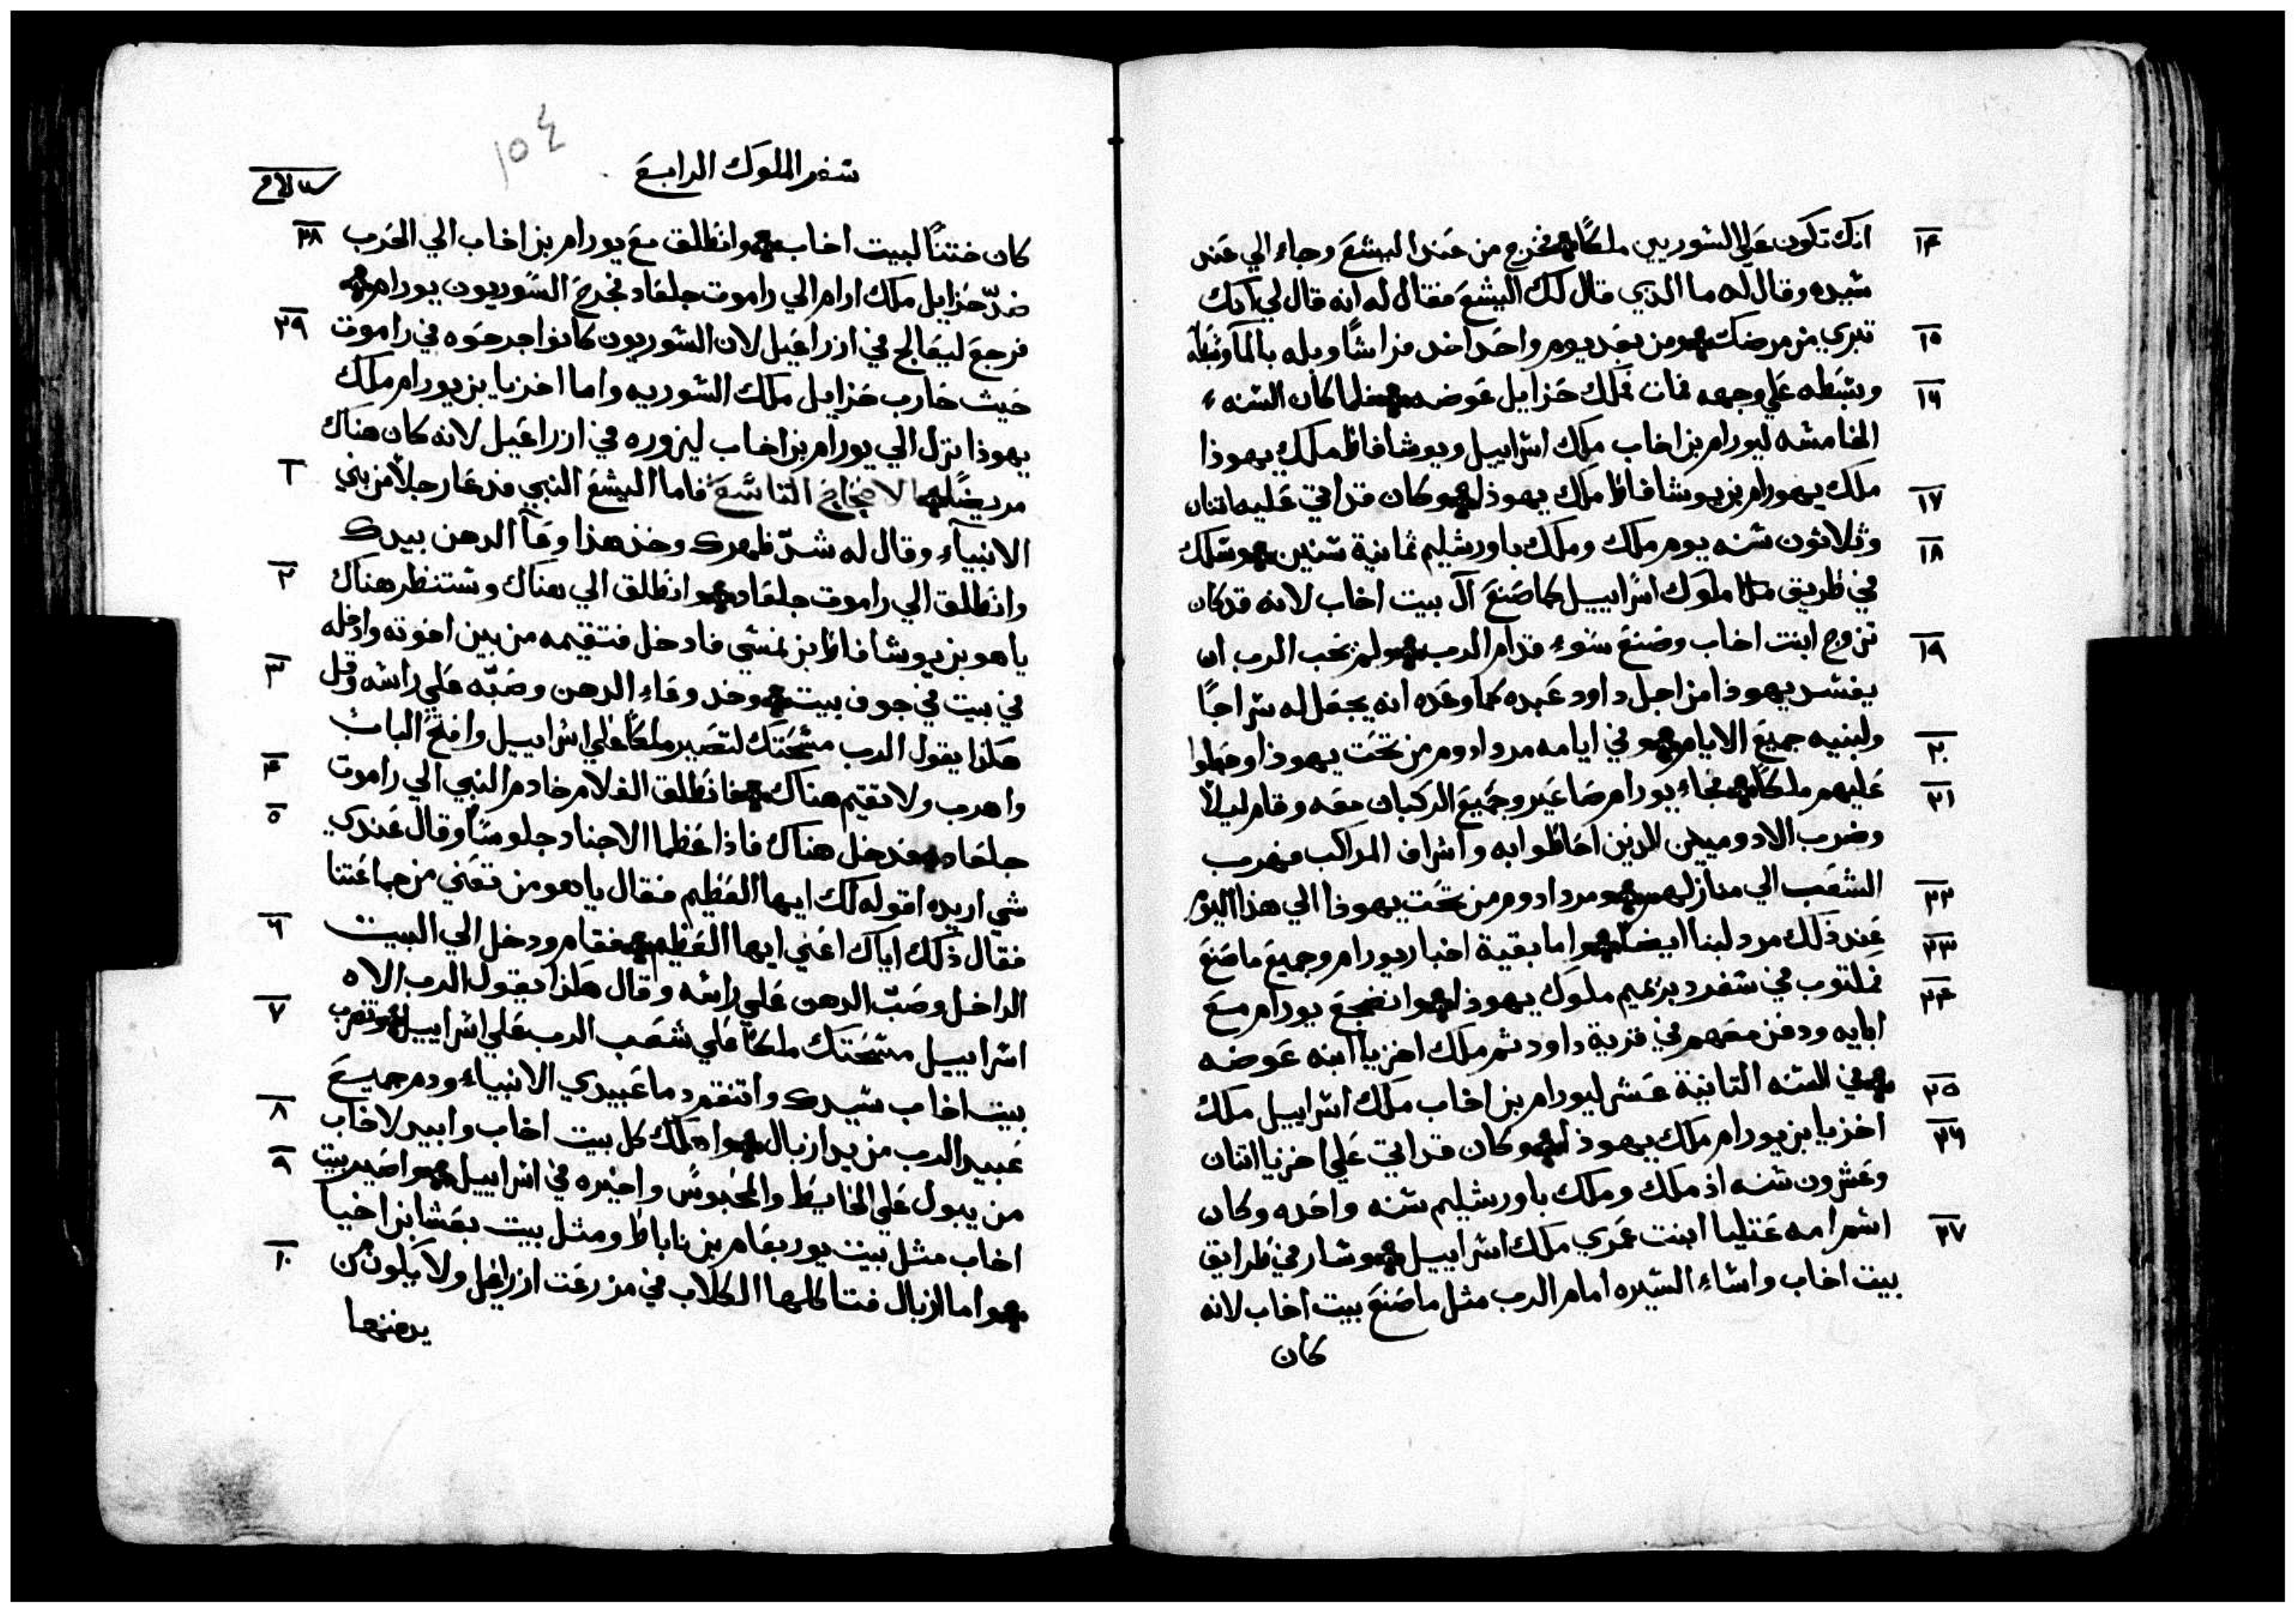 انك تكون علي السوريين ملكًا فخرج من عند اليشع وجاء الي عند
١٤
سيده وقال له ما الذي قال لك اليشع فقال له انه قال لي انك
تبري من مرضك ومن بعد يوم واحد اخد فراشًا وبله بالمآ
١٥
وبسطه علي وجهه فمات فملك حزايل عوضه فلما كان السنه
١٦
الخامسه ليورام بن اخاب ملك اسراييل ويوشافاط ملك يهوذا
ملك يهورام بن يوشافاط ملك يهوذا وكان قد اتي عليه اتنان
١٧
وثلاثون سنه يوم ملك وملك باورشليم ثمانية سنين وسلك
١٨
في طريق ملوك اسراييل كما صنع آل بيت اخاب لانه قد كان
تزوج ابنت اخاب وصنع سوء قدام الرب ولم يحب الرب ان
١٩
يفسد يهوذا من اجل داود عبده كما وعده انه يجعل له سراجًا
ولبنيه جميع الايام وفي ايامه مرد ادوم من تحت يهوذا وجعلوا
٢٠
عليهم ملكًا فجاء يورام صاعير وجميع الركبان معه وقام ليلًا
٢١
وضرب الادوميين الذين احاطوا به واشراف المراكب فهرب
الشعب الي منازلهم ومرد ادوم من تحت يهوذا الي هذا اليوم
٢٢
عند ذلك مرد لبنا ايضًا واما بقية اخبار يورام وجميع ما صنع
٢٣
فمكتوب في سفر دبرنميم ملوك يهوذا وانضجع يورام مع
٢٤
ابايه ودفن معهم في قرية داود ثم ملك اخزيا ابنه عوضه
في السنه التانية عشر ليورام بن اخاب ملك اسراييل ملك
٢٥
اخزيا بن يورام ملك يهوذا وكان قد اتي علي اخزيا اتنان
٢٦
وعشرون سنه اذ ملك وملك باورشليم سنه واحده وكان
اسم امه عتليا ابنت عمري ملك اسراييل وسار في طرايق
٢٧
بيت اخاب واساء السيره امام الرب مثل ما صنع بيت اخاب لانه
كان
١٥٤
سفر الملوك الرابع
كان ختنًا لبيت اخاب وانطلق مع يورام بن اخاب الي الحرب
٢٨
ضدّ حزايل ملك ارام الي راموت جلعاد فجرح السوريون يورام
فرجع ليعالج في ازراعيل لان السوريون كانوا جرحوه في راموت
٢٩
حيث حارب حزايل ملك السوريه واما اخزيا بن يورام ملك
يهوذا نزل الي يورام بن اخاب ليزوره في ازراعيل لانه كان هناك
مريضًا الاصحاح التاسع فاما اليشع النبي فدعا رجلًا من بني
١
الانبيآء وقال له شدّ ظهرك وخذ هذا وعآ الدهن بيدك
وانطلق الي راموت جلعاد وانطلق الي هناك وستنظر هناك
٢
ياهو بن يوشافاط بن نمشي فادخل فتقيمه من بين اخوته وادخله
في بيت في جوف بيت وخد وعاء الدهن وصبّه علي راسه وقل
٣
هكذا يقول الرب مسحتك لتصير ملكًا علي اسراييل وافتح الباب
واهرب ولا تقتم هناك فانطلق الغلام خادم النبي الي راموت
٤
جلعاد فدخل هناك فاذا عظما الاجناد جلوسًا وقال عندي
٥
شي اريده اقوله لك ايها العظيم فقال ياهو من تعني من جماعتنا
فقال ذلك اياك اعني ايها العظيم فقام ودخل الي البيت
٦
الداخل وصبّ الدهن علي راسه وقال هكذا يقول الرب الاه
اسراييل مسحتك ملكًا علي شعب الرب علي اسراييل وتضرب
٧
بيت اخاب سيدك وانتقم دما عبيدي الانبياء ودم جميع
عبيد الرب من يد ازبال واهلك كل بيت اخاب وابيد لاخاب
٨
من يبول علي الحايط والمحبوس واخيره في اسراييل واصير بيت
٩
اخاب مثل بيت يوربعام بن ناباط ومثل بيت بعشا بن اخيا
واما ازبال فتاكلها الكلاب في مزرعت ازراعيل ولا يكون من
١٠
يدفنها